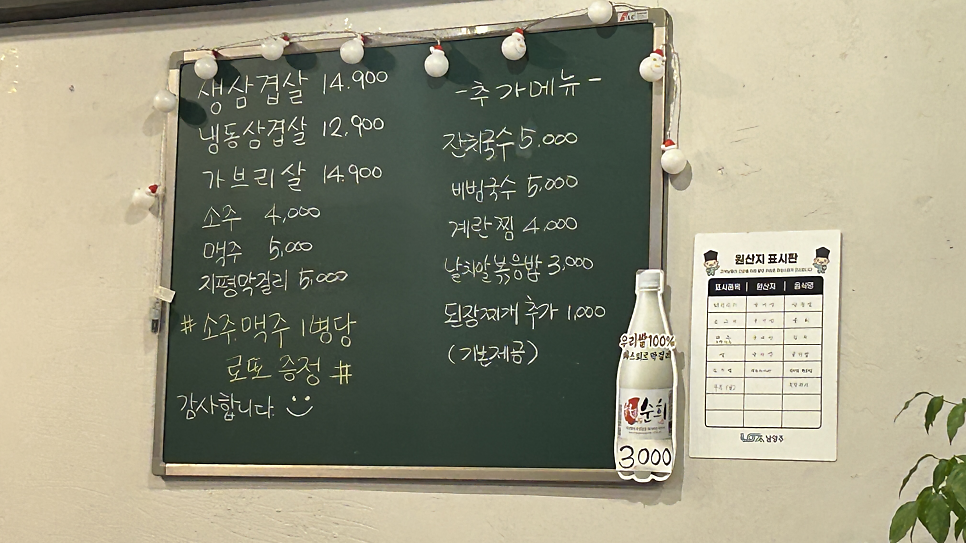 생삼겹살 14.900
냉동삼겹살 12,900
가브리살 14.900
소주 4,000
맥주 5,000
지평막걸리 5,000
#소주.맥주 1병당
로또 증정 #
감사합니다.
-추가메뉴-
잔치국수 5.000
비빔국수 5,000
계란찜 4.000
날치알볶음밥 3,000
된장찌개 추가 1,000
(기본제공)
우리쌀100%
순희
3000
원산지 표시판
표시품목 원산지 음식명
남양주